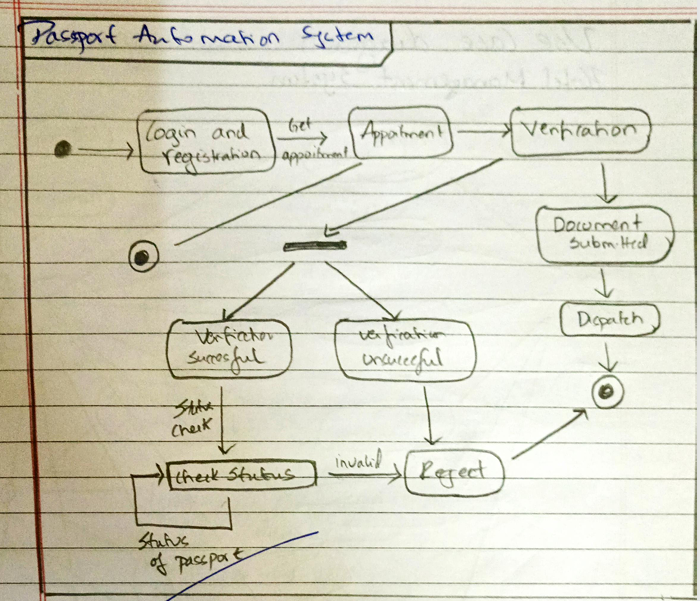 Passport Automation System
Login and
registration
Get
appointment
Appointment
Verification
Document
submitted
Dispatch
Verification
successful
verification
unsuccessful
Status
check
check status
invalid
Reject
Status
of passport